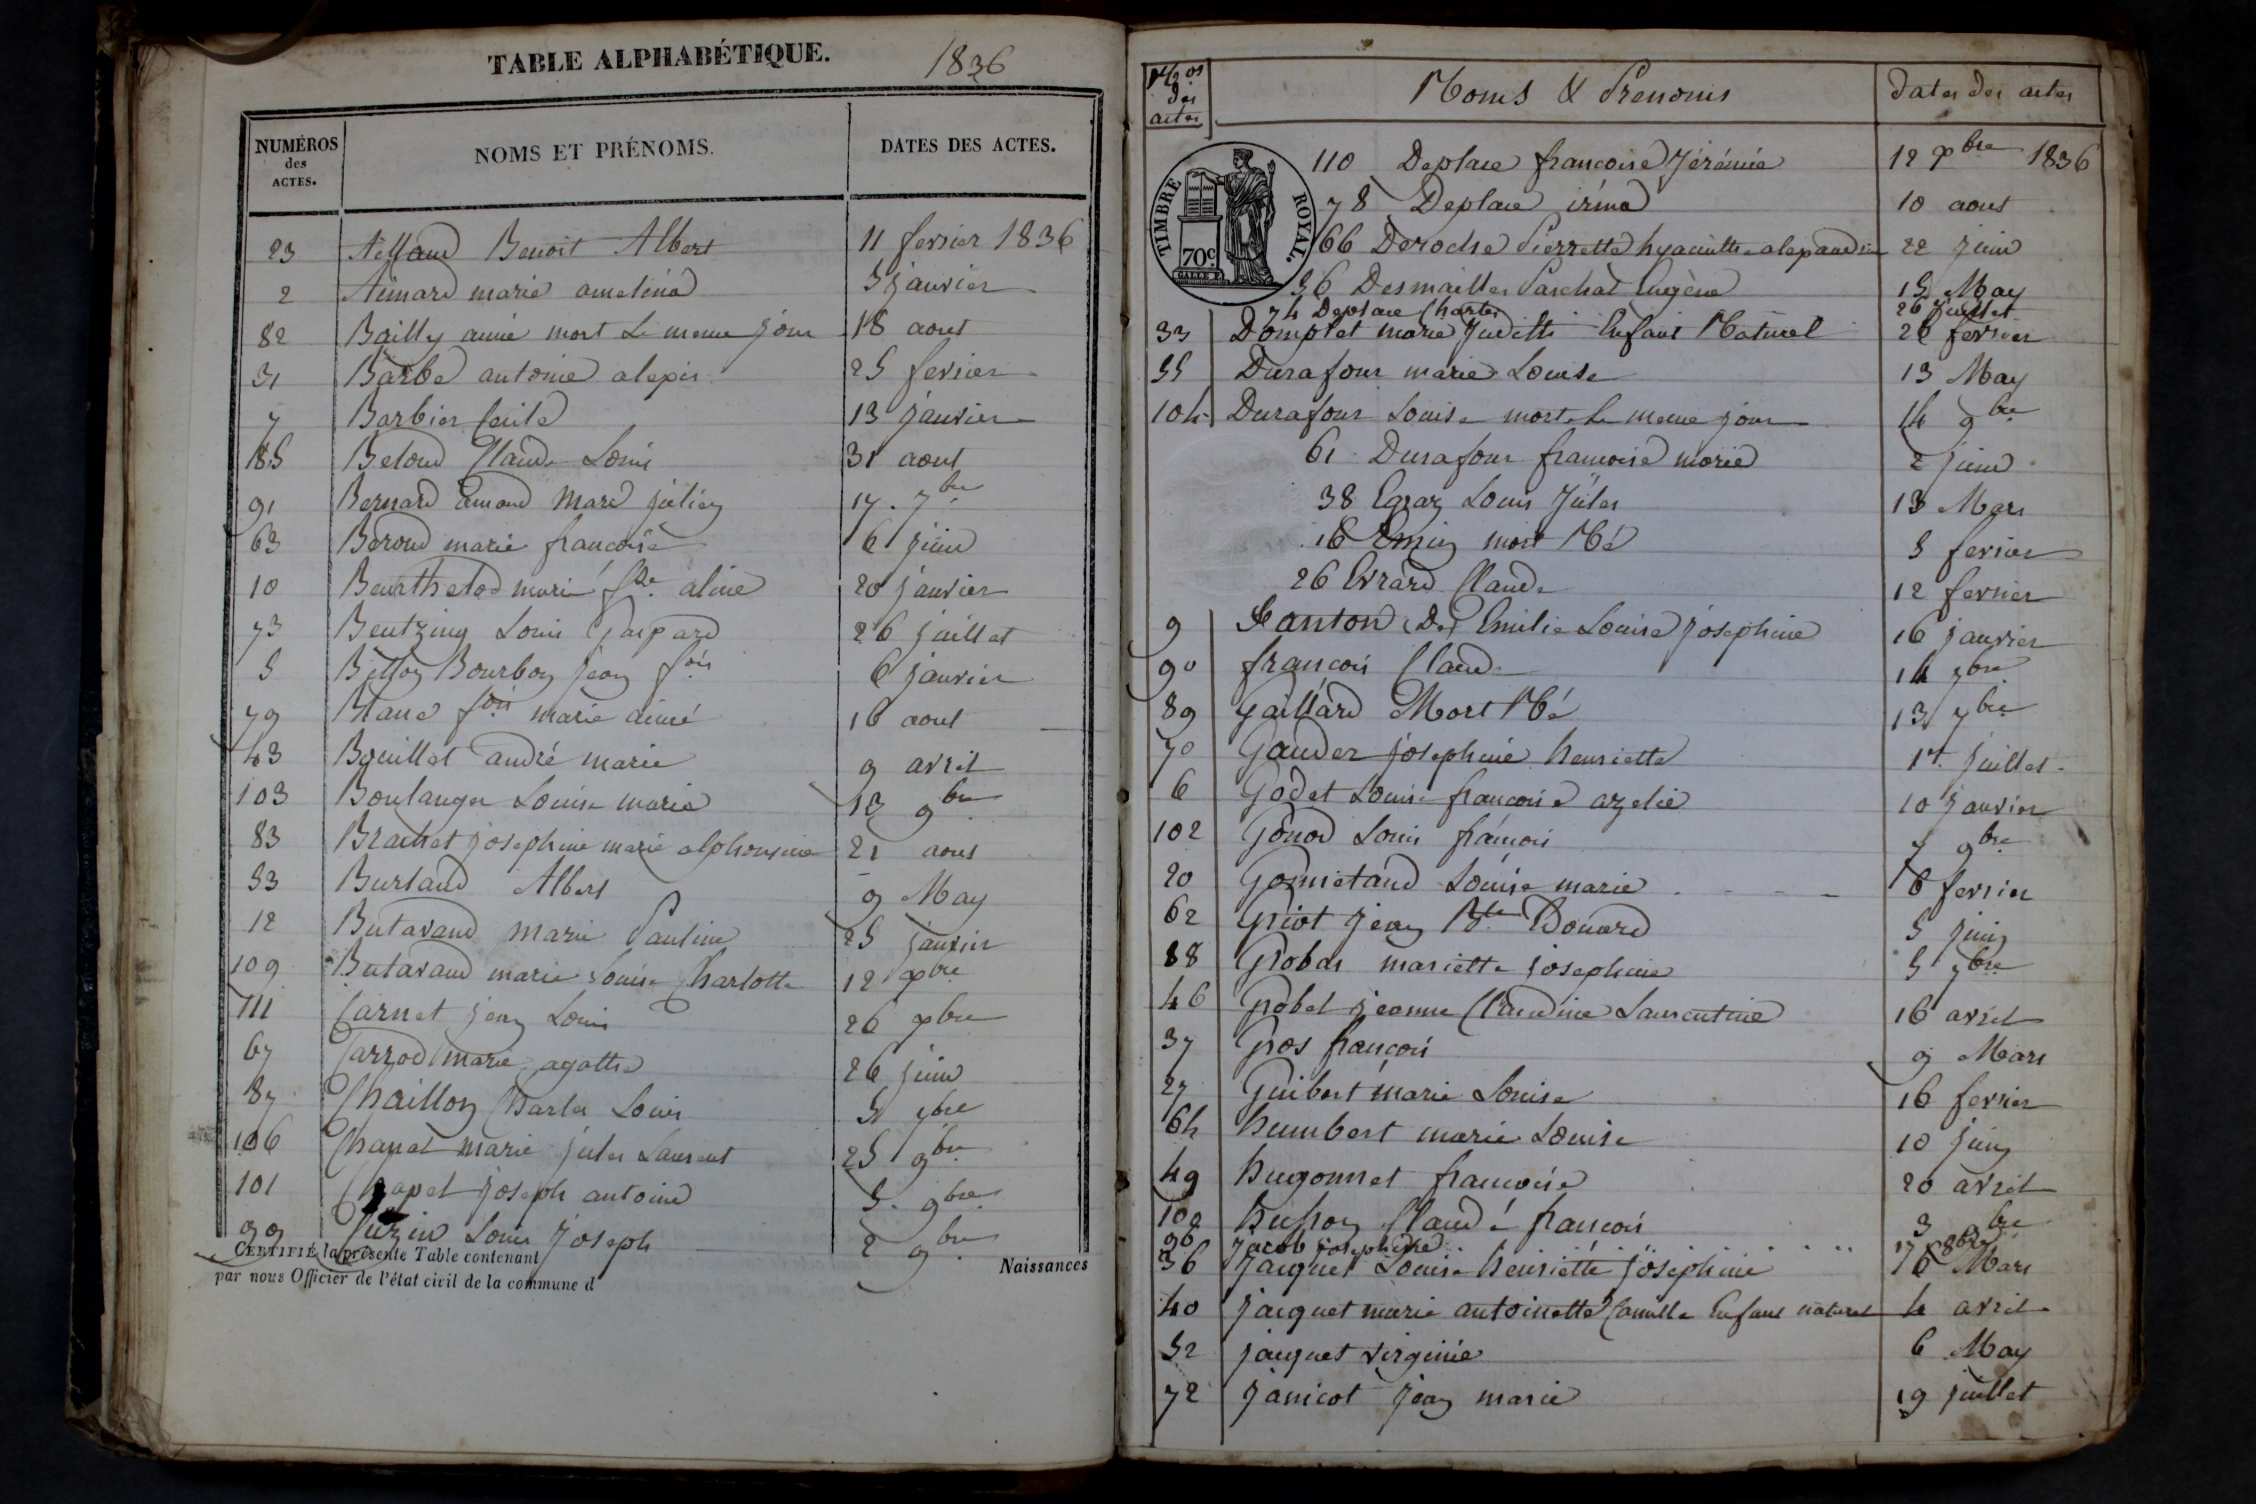 TABLE ALPHABÉTIQUE. 1836
NUMÉROS des ACTES. NOMS ET PRÉNOMS. DATES DES ACTES.
23 Benoit Albert 11 fevrier 1836
2 Aimard marie amelina 5 janvier
82 Bailly aimé mort le meme jour 18 aout
31 Barbe antoine alexis 25 fevrier
7 Barbier Cecile 13 janvier
85 Beloud Claude Louis 31 aout
91 Bernard Emond Marc julien 17 7bre
63 Beroud marie francoise 6 juin
10 Beurthelod marie fse aline 20 janvier
73 Beutzing Louis Gaspard 26 juillet
5 Billon Bourbon jean fois 6 janvier
79 Blanc fois marie aimé 16 aout
43 Bouillet andré marie 9 avril
103 Boulanger Louise marie 13 9bre
83 Brachet josephine marie alphonsine 21 aout
53 Burland Albert 9 May
12 Butavand marie Pauline 25 janvier
109 Butavand marie Louise Charlotte 12 xbre
111 Carnet jean Louis 26 xbre
67 Carrod marie agathe 26 juin
87 Chaillon Charles Louis 5 7bre
106 Chanel marie jules Laurent 25 9bre
101 Chapel joseph antoine 5 9bre
99 Cuzin Louis Joseph 2 9bre
CERTIFIÉ la présente Table contenant Naissances
par nous Officier de l'état civil de la commune d
Nos des actes Noms & Prenoms dates des actes
TIMBRE ROYAL. 70c.
110 Deplace francoise Jérémie 12 xbre 1836
78 Deplace irma 10 aout
66 Deroche Pierrette hyacinthe alexandrine 22 juin
56 Desmailles Paschal Eugène 15 May
74 Deplace Charles 26 juillet
33 Domplet marie Judith Enfant Naturel 26 fevrier
55 Durafour marie Louise 13 May
104 Durafour Louise morte le meme jour 14 9bre
61 Durafour francoise marie 2 juin
38 Egraz Louis Jules 13 Mars
16 Emin mort Né 5 fevrier
26 Evrard Claude 12 fevrier
9 Emilie Louise josephine 16 janvier
90 francois Claude 14 7bre
89 gaillard Mort Né 13 7bre
70 Gauder josephine henriette 1er juillet
6 Godet Louise francoise azelie 10 janvier
102 Gonod Louis francois 7 9bre
20 Gonnetand Louise marie 6 fevrier
62 Griot jean Bte Edouard 5 juin
88 Grobas mariette josephine 5 7bre
46 Grobel jeanne Claudine Laurentine 16 avril
37 Gros francois 9 Mars
27 Guibert marie Louise 16 fevrier
64 humbert marie Louise 10 juin
49 hugonnet francoise 20 avril
100 husson Claude francois 3 9bre
98 jacob josephine 17 8bre
36 jacquet Louise henriette josephine 6 Mars
40 jacquet marie antoinette Camille Enfant naturel 4 avril
52 jacquet virginie 6 May
72 janicot jean marie 19 juillet